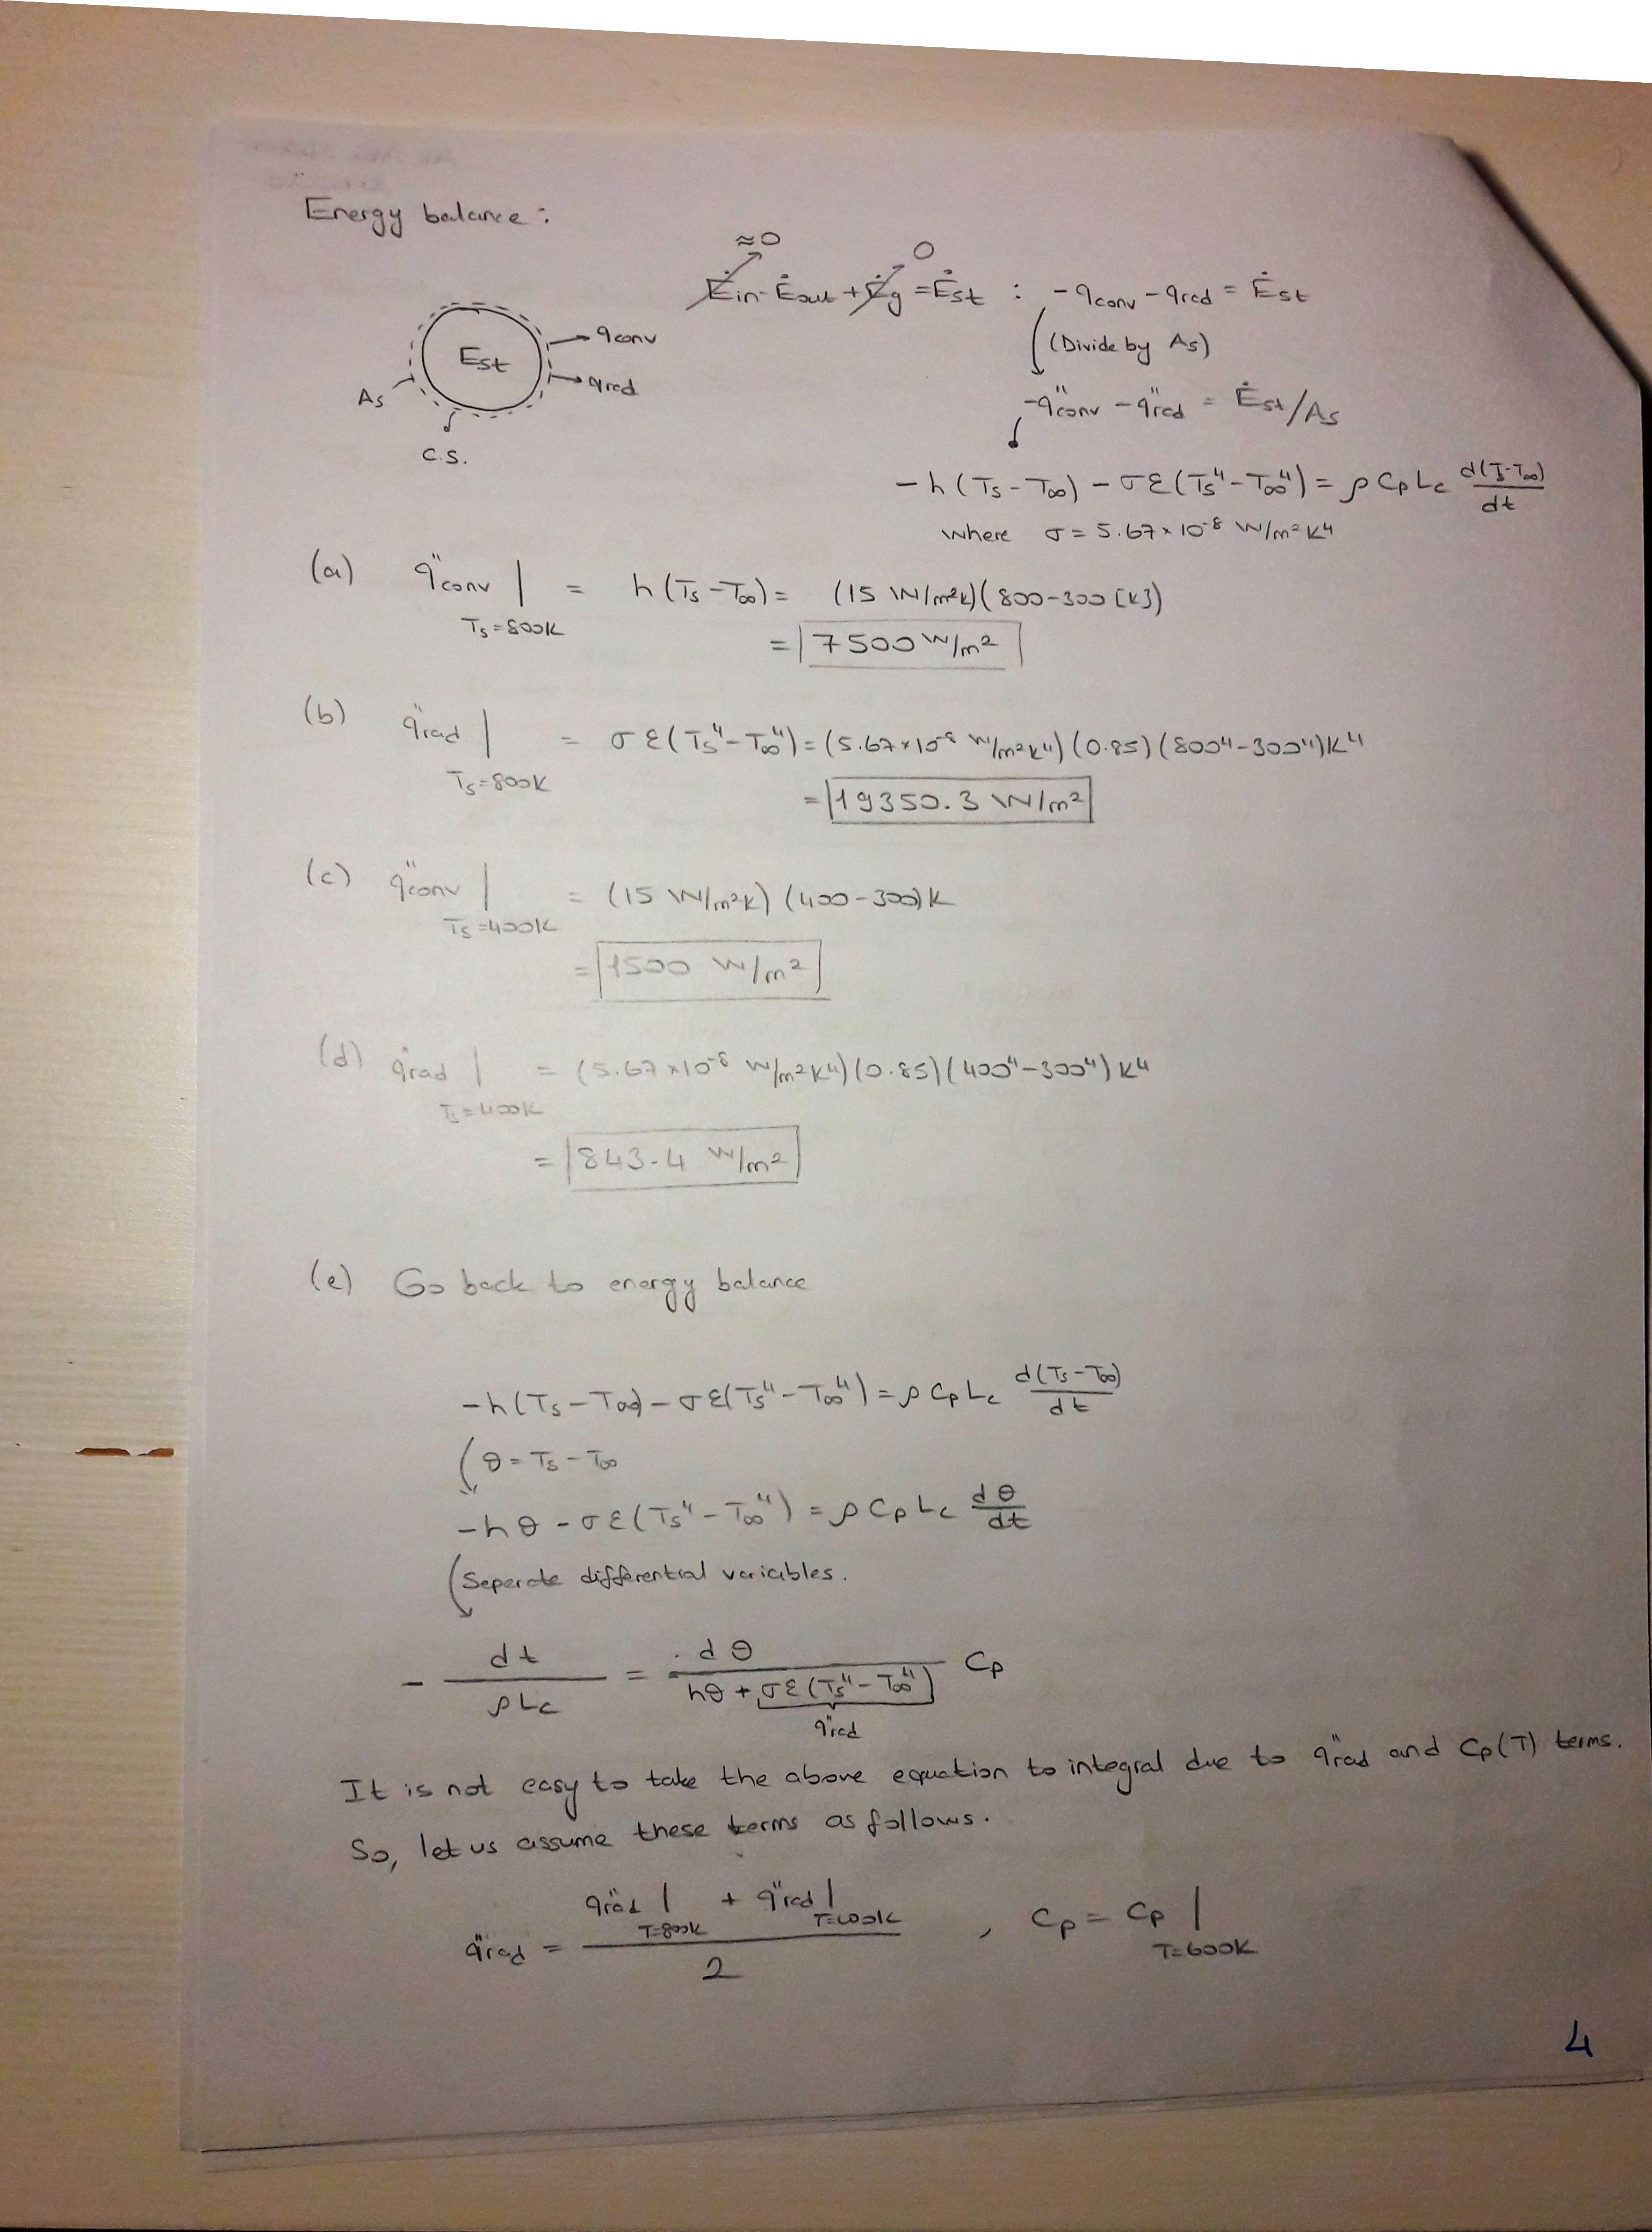 Energy balance :
≈0
0
Ėin - Ėout + Ėg = Ėst : -qconv - qrad = Ėst
(Divide by As)
Est
qconv
qrad
As
C.S.
-q̈conv - q̈rad = Ėst/As
-h(Ts-T∞) - σε(Ts⁴-T∞⁴) = ρ Cp Lc d(Ts-T∞)/dt
where σ = 5.67×10⁻⁸ W/m²K⁴
(a) q̈conv | Ts=800K = h(Ts-T∞) = (15 W/m²K)(800-300 [K])
= 7500 W/m²
(b) q̈rad | Ts=800K = σε(Ts⁴-T∞⁴) = (5.67×10⁻⁸ W/m²K⁴)(0.85)(800⁴-300⁴)K⁴
= 19350.3 W/m²
(c) q̈conv | Ts=400K = (15 W/m²K)(400-300)K
= 1500 W/m²
(d) q̈rad | Ts=400K = (5.67×10⁻⁸ W/m²K⁴)(0.85)(400⁴-300⁴)K⁴
= 843.4 W/m²
(e) Go back to energy balance
-h(Ts-T∞) - σε(Ts⁴-T∞⁴) = ρ Cp Lc d(Ts-T∞)/dt
θ = Ts-T∞
-hθ - σε(Ts⁴-T∞⁴) = ρ Cp Lc dθ/dt
Seperate differential variables.
- dt/ρLc = dθ/(hθ + σε(Ts⁴-T∞⁴)) Cp
q̈rad
It is not easy to take the above equation to integral due to q̈rad and Cp(T) terms.
So, let us assume these terms as follows.
q̈rad = (q̈rad | T=800K + q̈rad | T=400K)/2 , Cp = Cp | T=600K
4